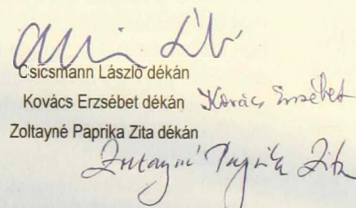 Csicsmann László dékán
Kovács Erzsébet dékán Kovács Erzsébet
Zoltayné Paprika Zita dékán
Zoltayné Paprika Zita